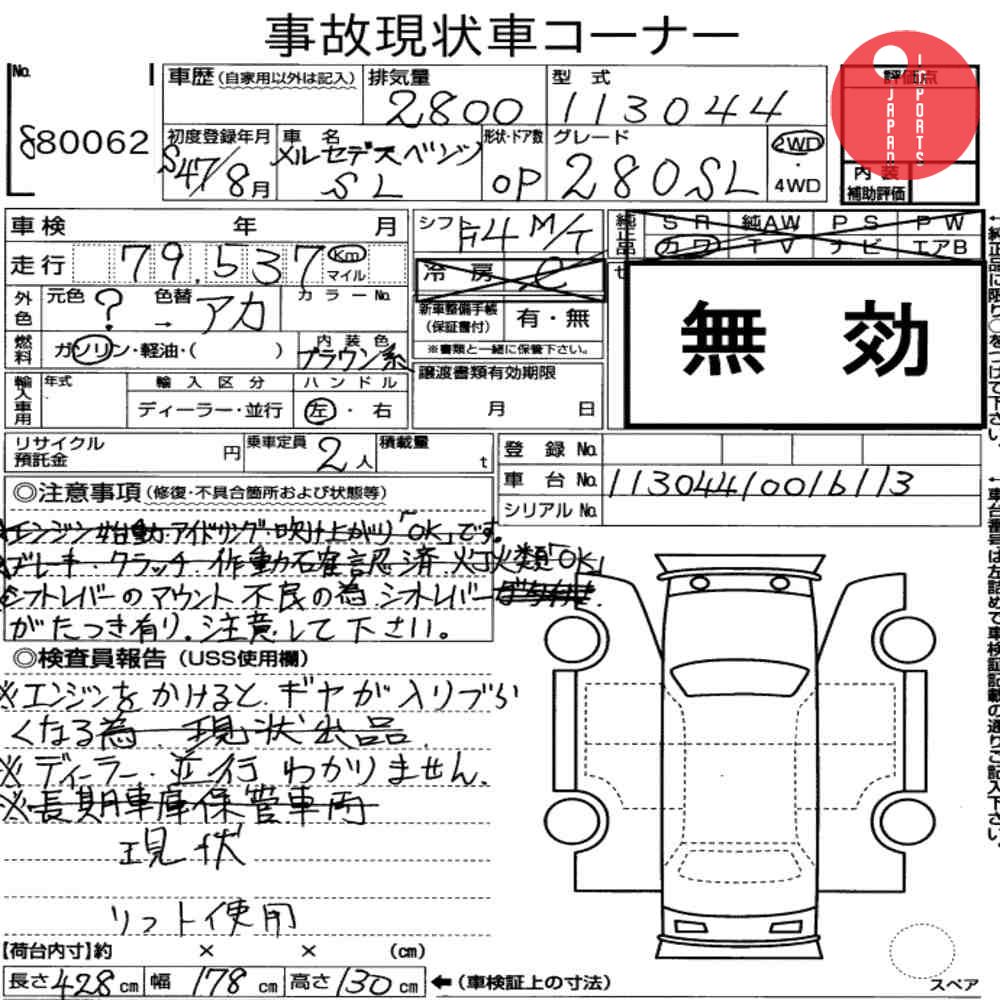 事故現状車コーナー
No.
車歴 (自家用以外は記入)
排気量
型式
評価点
IMPORTS
JAPAN
2800
113044
80062
初度登録年月
車名
形状・ドア数
グレード
2WD
・
4WD
S47/8月
メルセデスベンツ
SL
OP
280SL
内装
補助評価
車検 年 月
シフト
F4 M/T
純正品
SR 純AW PS PW
カワ TV ナビ エアB
走行 79,537 Km
マイル
冷房
無効
外色
元色 ? 色替 → アカ
カラーNo.
新車整備手帳
(保証書付)
有・無
※書類と一緒に保管下さい。
燃料
ガソリン・軽油・( )
内装色
ブラウン系
輸入車用
年式
輸入区分
ハンドル
ディーラー・並行
左・右
譲渡書類有効期限
月 日
リサイクル
預託金
円
乗車定員 2人
積載量 t
登録No.
車台No. 11304410016113
シリアルNo.
◎注意事項 (修復・不具合箇所および状態等)
エンジン始動アイドリング吹け上がり「OK」です。
ブレーキ・クラッチ作動石確認済 灯火類「OK」
シフトレバーのマウント不良の為 シフトレバー
がたつき有り。注意して下さい。
◎検査員報告 (USS使用欄)
※エンジンをかけると、ギヤが入りづら
くなる為 現状出品
※ディーラー・並行わかりません。
※長期車庫保管車両
現状
リフト使用
【荷台内寸】約 × × (cm)
長さ428cm 幅178cm 高さ130cm
←(車検証上の寸法)
スペア
←純正品に限り○をつけて下さい。
←車台番号は左詰めで車検証記載の通りご記入下さい。